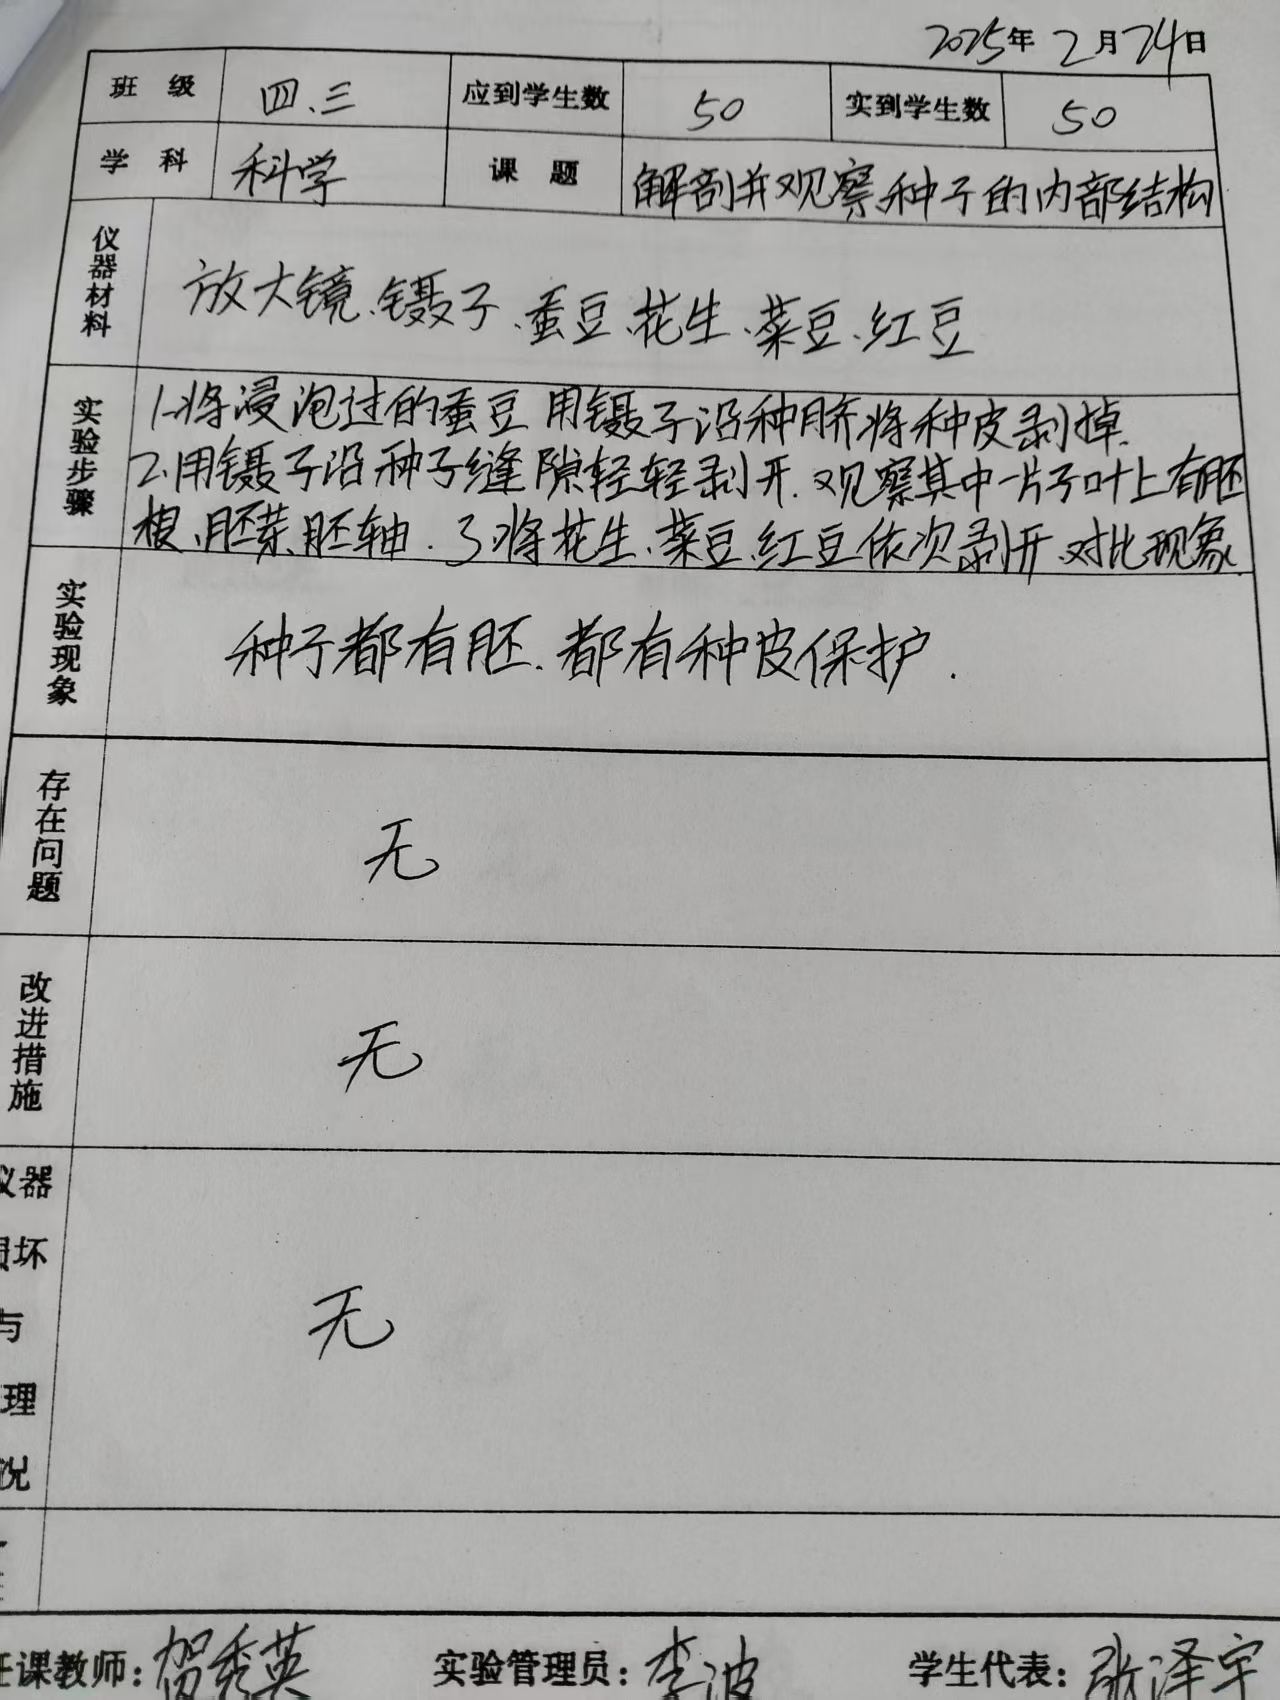 2025年2月24日
班 级 四.三 应到学生数 50 实到学生数 50
学 科 科学 课 题 解剖并观察种子的内部结构
仪器材料 放大镜、镊子、蚕豆、花生、菜豆、红豆
实验步骤 1.将浸泡过的蚕豆用镊子沿种脐将种皮剥掉.
2.用镊子沿种子缝隙轻轻剥开.观察其中一片子叶上有胚
根、胚芽、胚轴.3.将花生、菜豆、红豆依次剥开、对比现象
实验现象 种子都有胚.都有种皮保护.
存在问题 无
改进措施 无
仪器
损坏
与 无
理
况
任课教师:贺秀英 实验管理员:李波 学生代表:张泽宇